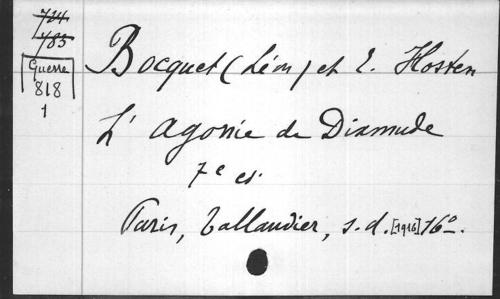 724
783
Guerre
818
1
Bocquet (Léon) et E. Hosten
L'agonie de Dixmude
7e
Paris, Tallandier, s.d. [1916] 16º.